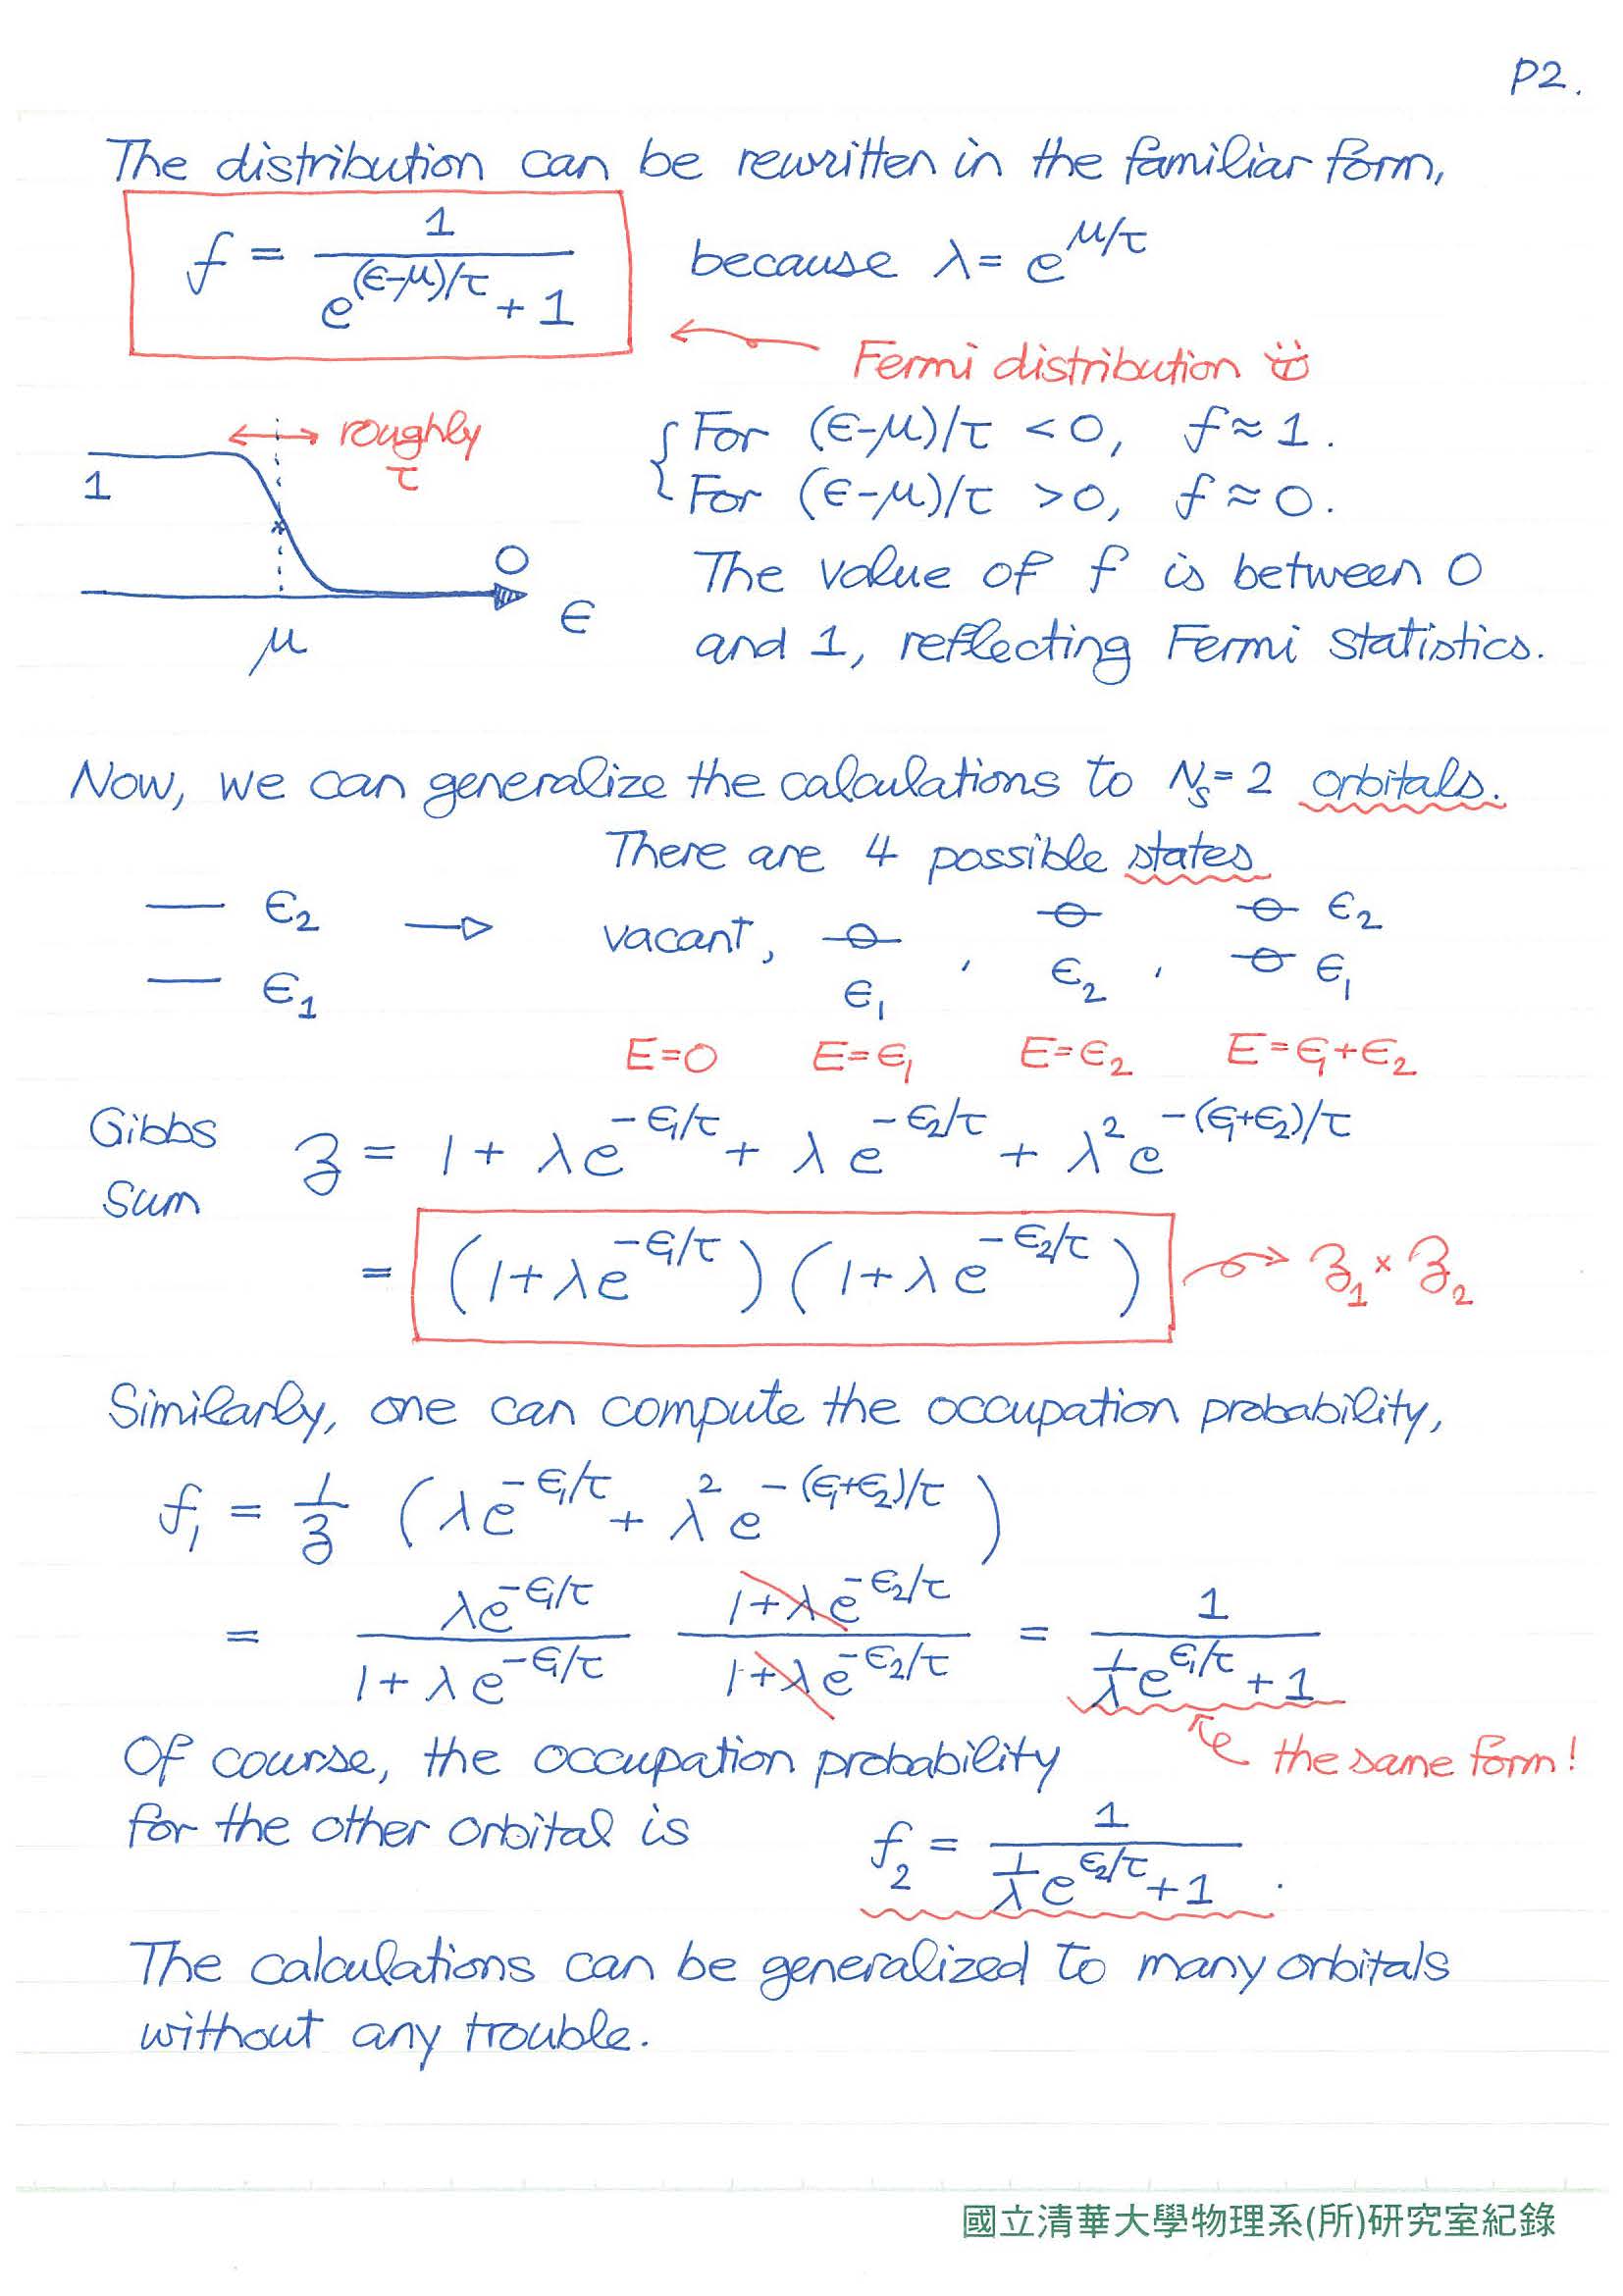 P2.
The distribution can be rewritten in the familiar form,
f = 1 / (e^{(ϵ-μ)/τ} + 1) because λ = e^{μ/τ}
Fermi distribution
roughly τ
1
0
ϵ
μ
{ For (ϵ-μ)/τ < 0, f ≈ 1.
For (ϵ-μ)/τ > 0, f ≈ 0.
The value of f is between 0
and 1, reflecting Fermi statistics.
Now, we can generalize the calculations to N_s = 2 orbitals.
There are 4 possible states
ϵ_2
ϵ_1
vacant, ϵ_1 , ϵ_2 , ϵ_2 ϵ_1
E=0 E=ϵ_1 E=ϵ_2 E=ϵ_1+ϵ_2
Gibbs Sum 𝔷 = 1 + λe^{-ϵ_1/τ} + λe^{-ϵ_2/τ} + λ^2 e^{-(ϵ_1+ϵ_2)/τ}
= (1+λe^{-ϵ_1/τ}) (1+λe^{-ϵ_2/τ}) 𝔷_1 × 𝔷_2
Similarly, one can compute the occupation probability,
f_1 = 1/𝔷 (λe^{-ϵ_1/τ} + λ^2 e^{-(ϵ_1+ϵ_2)/τ})
= λe^{-ϵ_1/τ} / (1+λe^{-ϵ_1/τ}) (1+λe^{-ϵ_2/τ}) / (1+λe^{-ϵ_2/τ}) = 1 / (1/λ e^{ϵ_1/τ} + 1)
Of course, the occupation probability
the same form!
for the other orbital is f_2 = 1 / (1/λ e^{ϵ_2/τ} + 1) .
The calculations can be generalized to many orbitals
without any trouble.
國立清華大學物理系(所)研究室紀錄